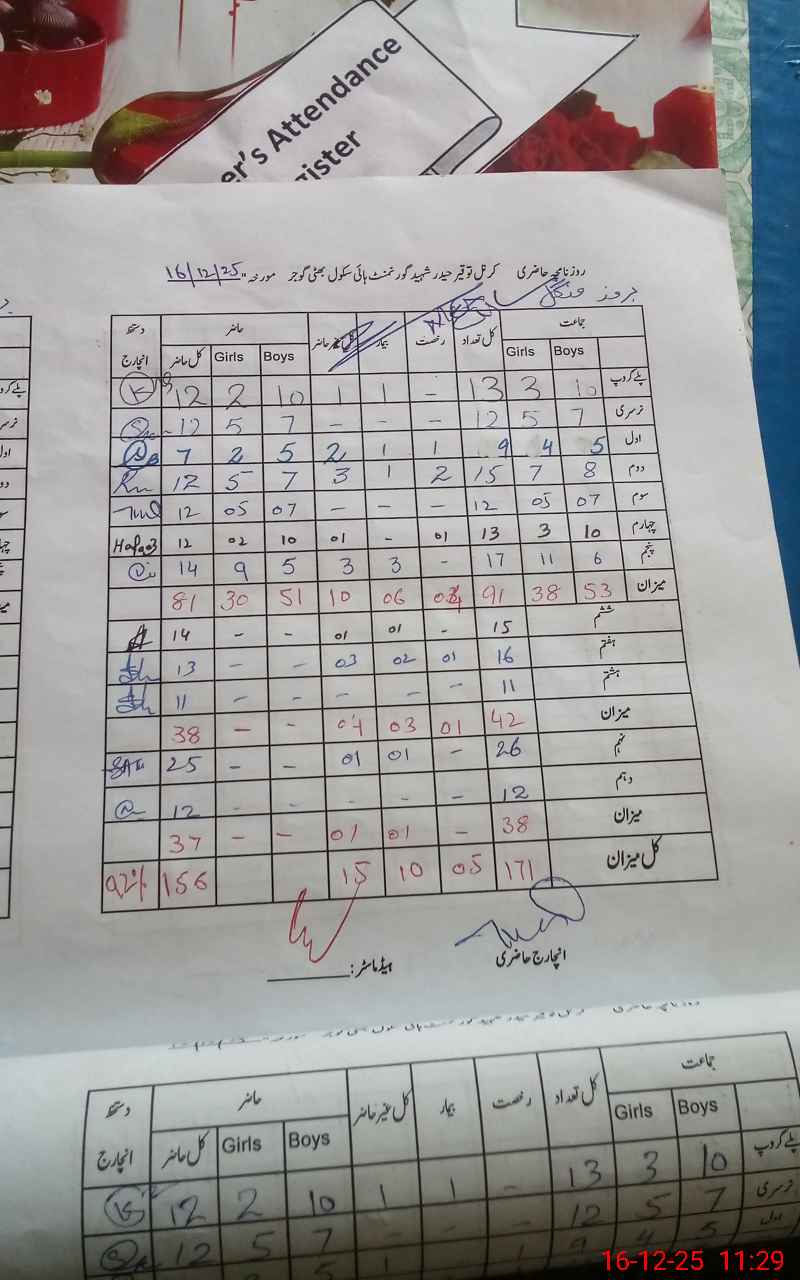 er's Attendance
ister
روزنامچہ حاضری کرنل توقیر حیدر شہید گورنمنٹ ہائی سکول بھٹی گوجر مورخہ 16/12/25
بروز منگل
جماعت کل تعداد رخصت بیمار کل غیر حاضر حاضر دستخط انچارج
Boys Girls Boys Girls کل حاضر
پلے گروپ 10 3 13 - 1 1 10 2 12
نرسری 7 5 12 - - - 7 5 12
اول 5 4 9 1 1 2 5 2 7
دوم 8 7 15 2 1 3 7 5 12
سوم 07 05 12 - - - 07 05 12
چہارم 10 3 13 01 - 01 10 02 12
پنجم 6 11 17 - 3 3 5 9 14
میزان 53 38 91 06 10 51 30 81
ششم 15 - 01 01 - - 14
ہفتم 16 01 02 03 - - 13
ہشتم 11 - - - - - 11
میزان 42 01 03 04 - - 38
نہم 26 - 01 01 - - 25
دہم 12 - - - - - 12
میزان 38 - 01 01 - - 37
کل میزان 171 05 10 15 156 92%
انچارج حاضری
ہیڈ ماسٹر:
جماعت کل تعداد رخصت بیمار کل غیر حاضر حاضر دستخط انچارج
Boys Girls Boys Girls کل حاضر
پلے گروپ 10 3 13 - 1 1 10 2 12
نرسری 7 5 12 - - - 7 5 12
اول 5 4 9 1 1 5
16-12-25 11:29